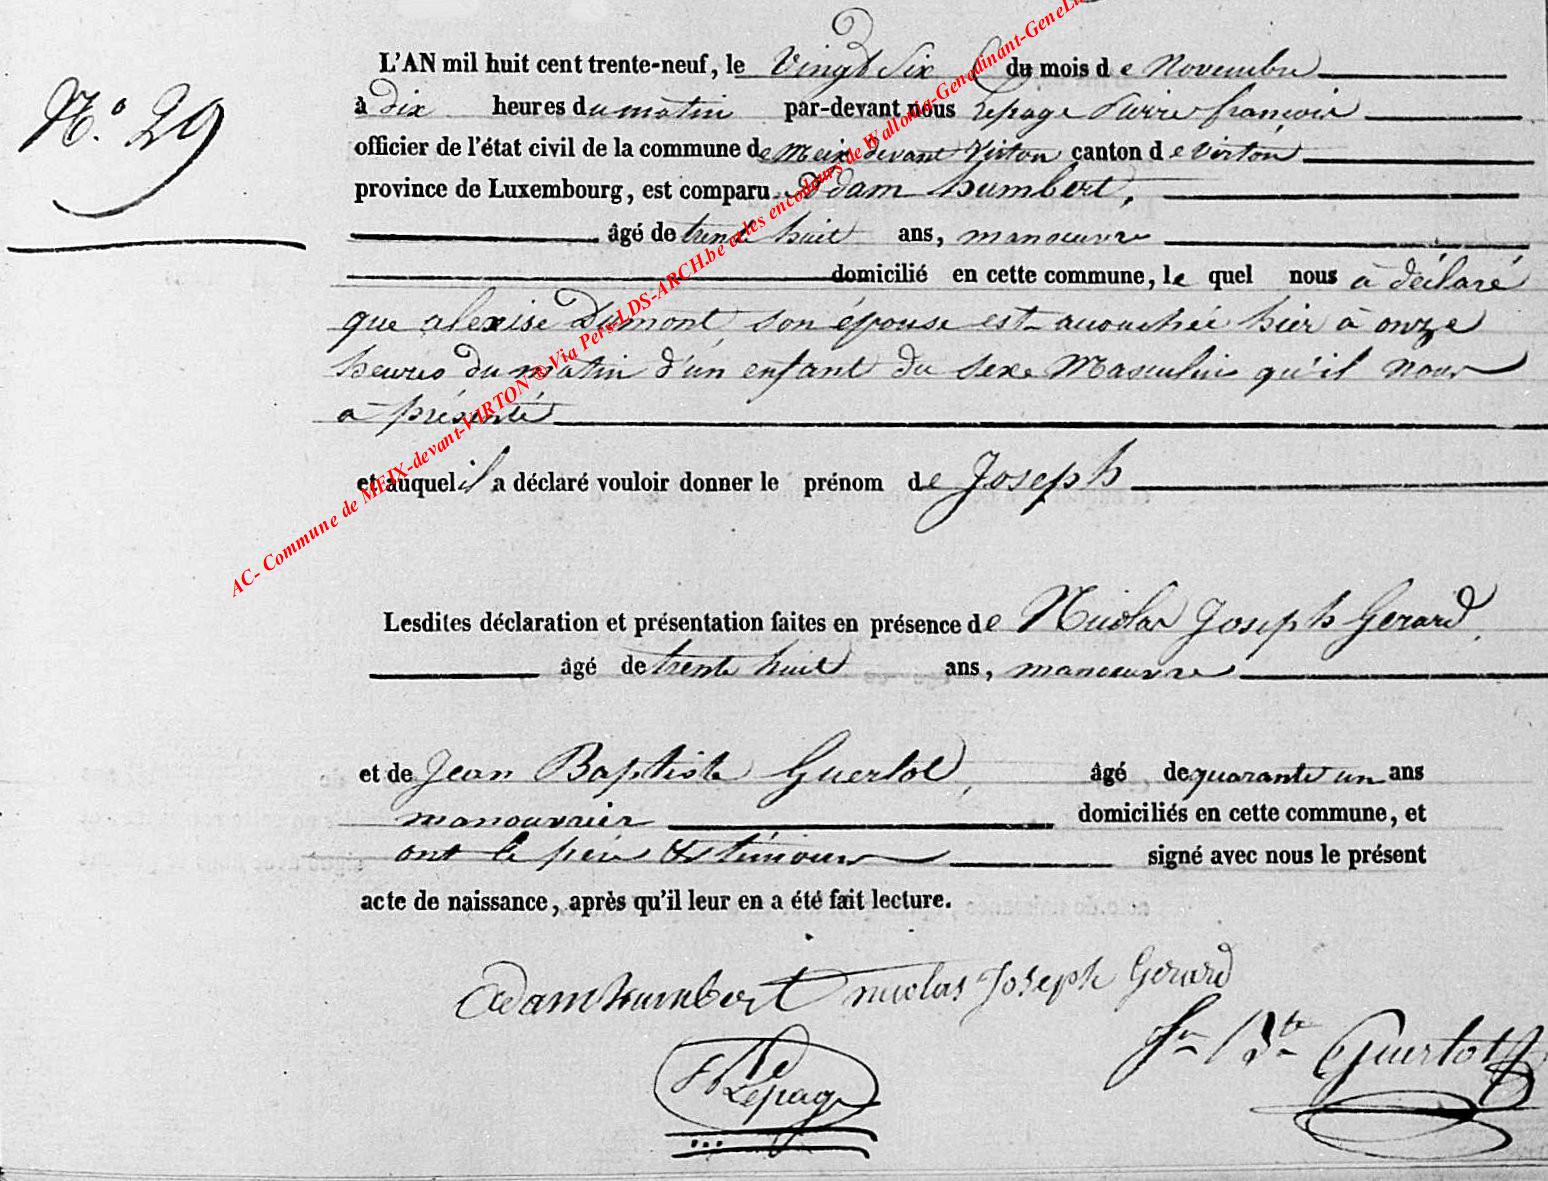 N.o 29
L'AN mil huit cent trente-neuf, le Vingt Six du mois de Novembre
à dix heures du matin par-devant nous Lepage Pierre françois
officier de l'état civil de la commune de Meix devant Virton canton de Virton
province de Luxembourg, est comparu Adam humbert,
âgé de trente huit ans, manoeuvre
domicilié en cette commune, le quel nous à déclaré
que alexise Dumont son épouse est accouchée hier à onze
heures du matin d'un enfant du sexe Masculin qu'il nous
a présenté
et auquel il a déclaré vouloir donner le prénom de Joseph
Lesdites déclaration et présentation faites en présence de Nicolas Joseph Gerard,
âgé de trente huit ans, manoeuvre
et de Jean Baptiste Guerlot, âgé de quarante un ans
manouvrier domiciliés en cette commune, et
ont le père & témoins signé avec nous le présent
acte de naissance, après qu'il leur en a été fait lecture.
Adam humbert nicolas Joseph Gerard
Jn Bte Guerlot
Lepage
AC- Commune de MEIX-devant-VIRTON ® Via Pers-LDS-ARCH.be et les encodeurs de Wallonia-Genedinant-GeneLux